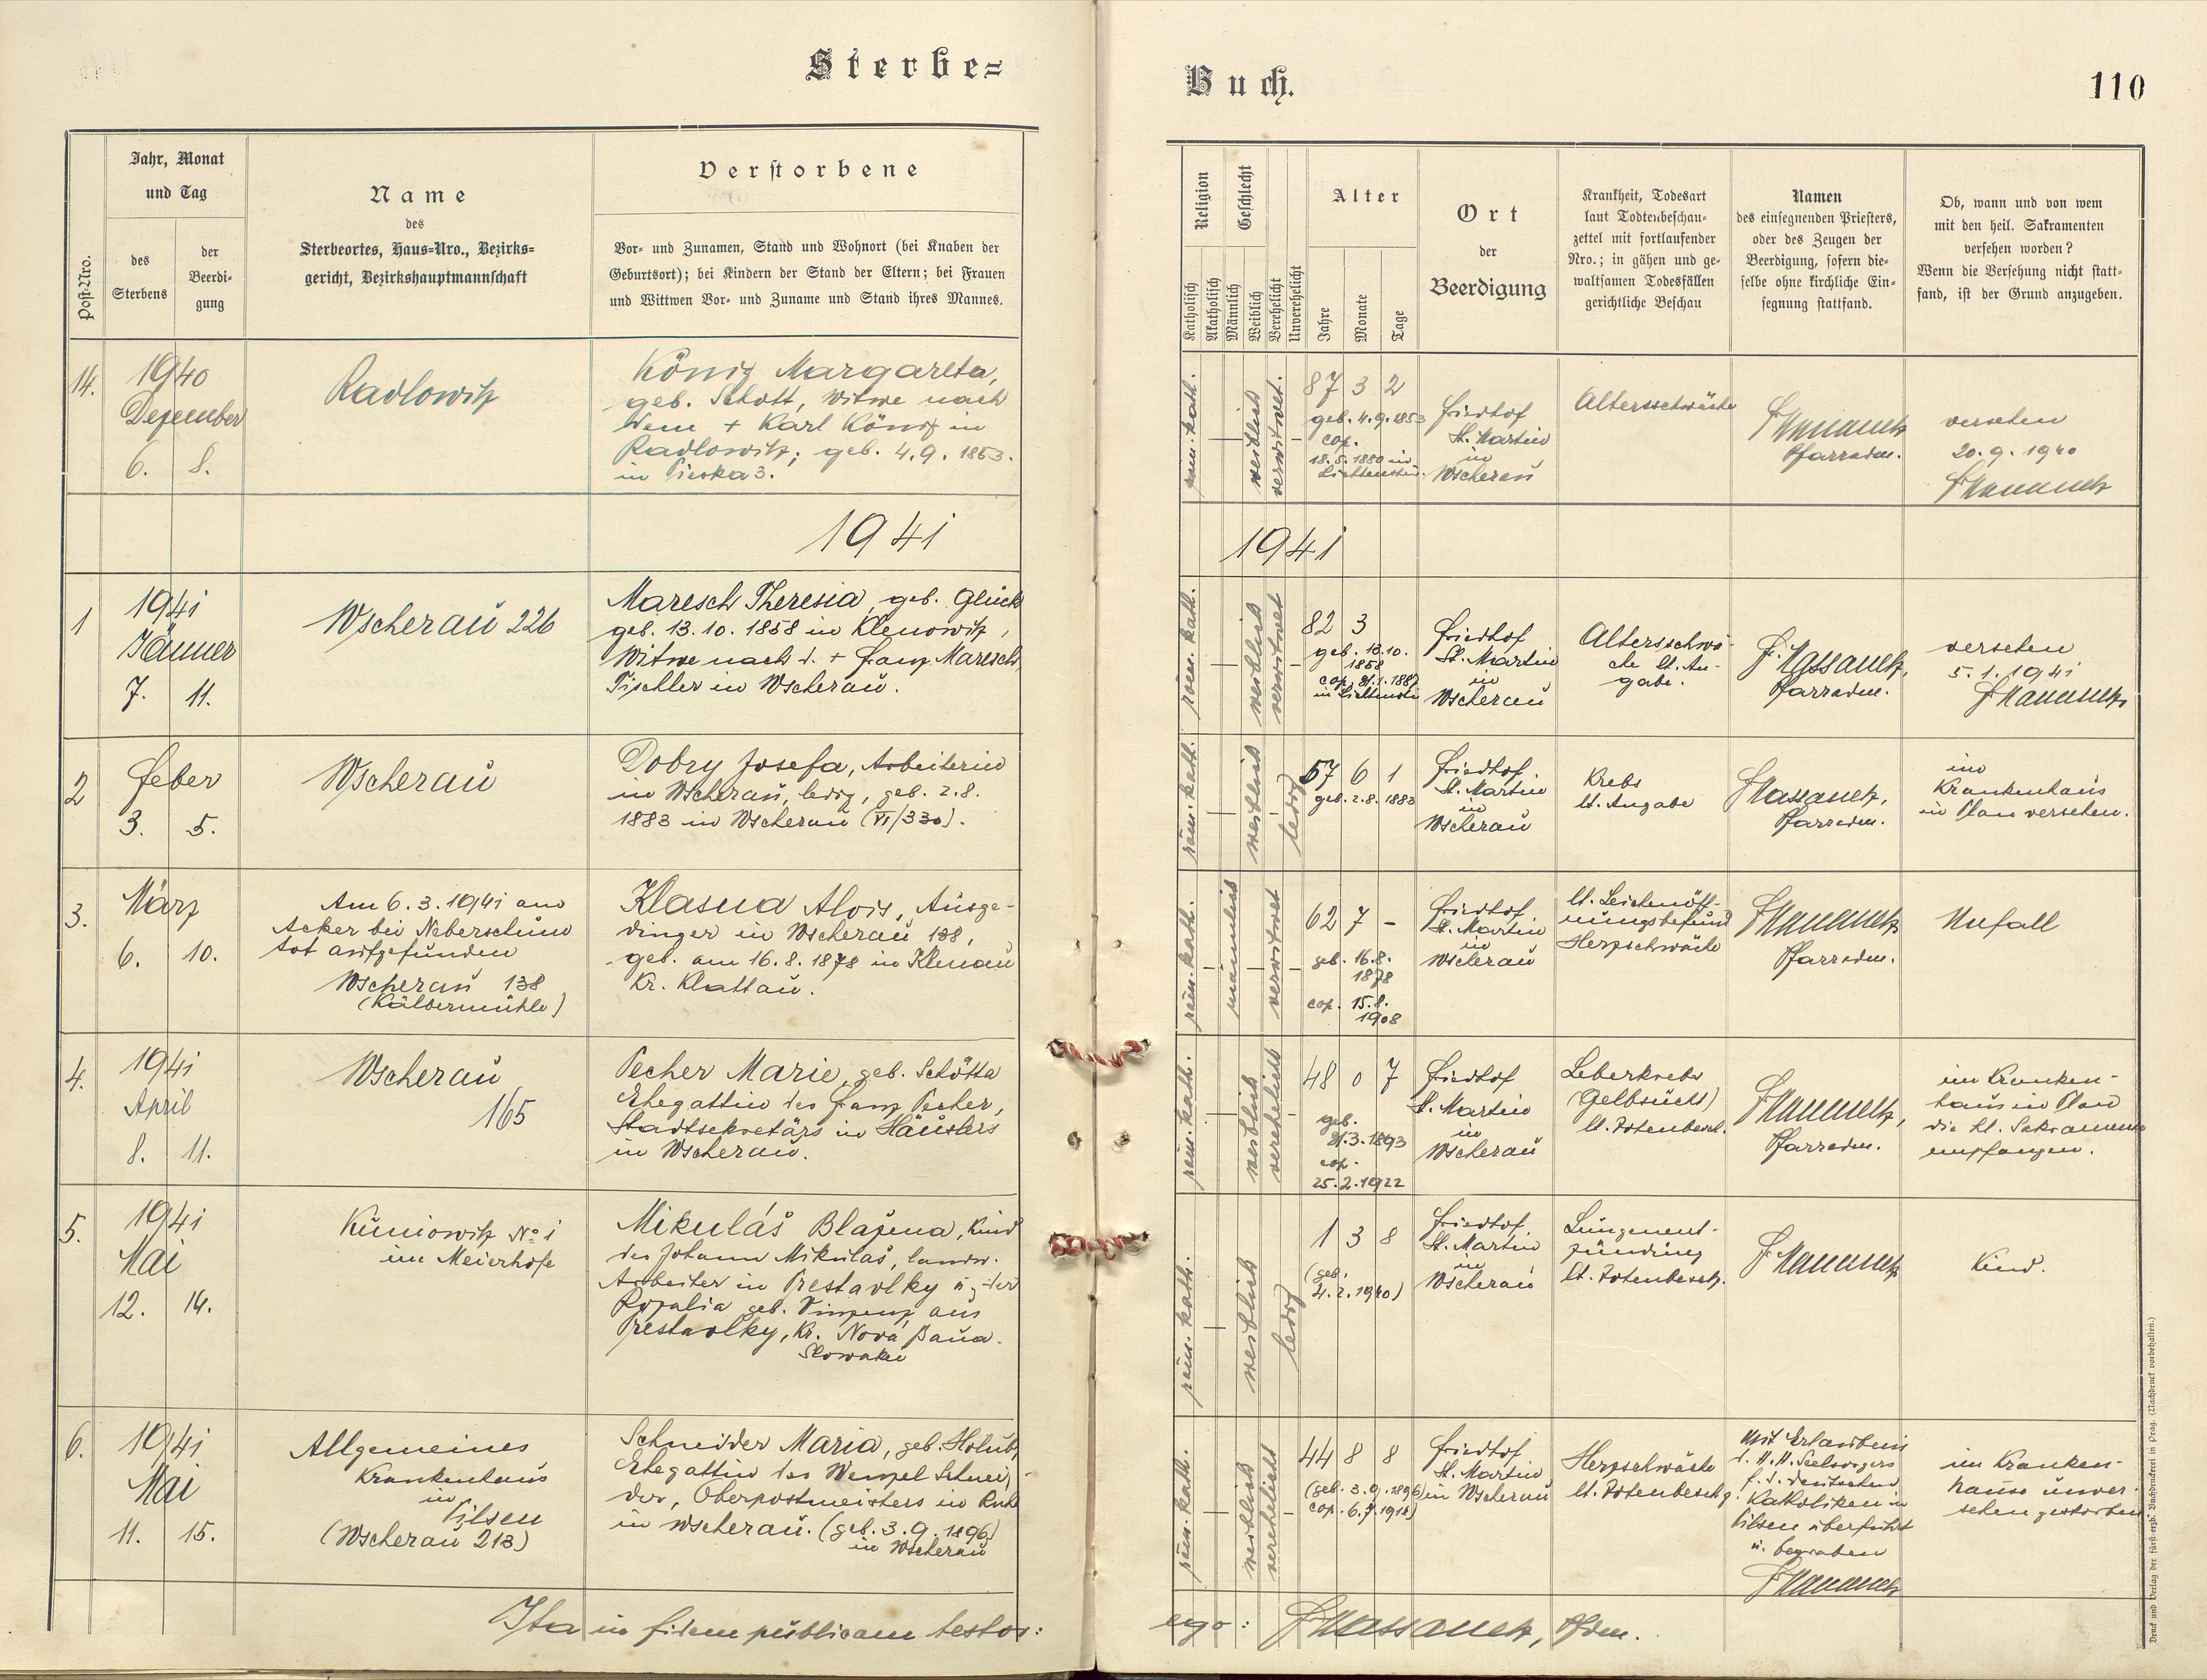 Sterbe=
Buch.
110
Post-Nro.
Jahr, Monat
und Tag
des
Sterbens
der
Beerdi-
gung
Name
des
Sterbeortes, Haus-Nro., Bezirks-
gericht, Bezirkshauptmannschaft
Verstorbene
Vor- und Zunamen, Stand und Wohnort (bei Knaben der
Geburtsort); bei Kindern der Stand der Eltern; bei Frauen
und Wittwen Vor- und Zuname und Stand ihres Mannes.
Religion
Katholisch
Akatholisch
Geschlecht
Männlich
Weiblich
Verehelicht
Unverehelicht
Alter
Jahre
Monate
Tage
Ort
der
Beerdigung
Krankheit, Todesart
laut Todtenbeschau-
zettel mit fortlaufender
Nro.; in gähen und ge-
waltsamen Todesfällen
gerichtliche Beschau
Namen
des einsegnenden Priesters,
oder des Zeugen der
Beerdigung, sofern die-
selbe ohne kirchliche Ein-
segnung stattfand.
Ob, wann und von wem
mit den heil. Sakramenten
versehen worden?
Wenn die Versehung nicht statt-
fand, ist der Grund anzugeben.
14.
1940
Dezember
6. 8.
Radlowitz
König Margareta,
geb. Schott, Witwe nach
dem + Karl König in
Radlowitz; geb. 4.9.1853.
in Pieska 3.
röm. kath.
weiblich
verwitwet.
87 3 2
geb. 4.9.1853
cop.
18.5.1880 in
Lichtenstein.
Friedhof
St. Martin
in
Wscherau
Altersschwäche
Pfarradm.
versehen
20.9.1940
1941
1941
1
1941
Jänner
7. 11.
Wscherau 226
Maresch Theresia, geb. Glück
geb. 13.10.1858 in Klenowitz,
Witwe nach d. + Franz Maresch,
Tischler in Wscherau.
röm. kath.
weiblich
verwitwet
82 3
geb. 13.10.
1858
cop. 31.1.1887
in Lichtenstein
Friedhof
St. Martin
in
Wscherau
Altersschwä-
che lt. An-
gabe.
F. Hassanetz,
Pfarradm.
versehen
5.1.1941
2
Feber
3. 5.
Wscherau
Dobry Josefa, Arbeiterin
in Wscherau, ledig, geb. 2.8.
1883 in Wscherau (VI/330).
röm. kath.
weiblich
ledig
57 6 1
geb. 2.8.1883
Friedhof
St. Martin
in
Wscherau
Krebs
lt. Angabe
F Hassanetz,
Pfarradm.
im
Krankenhaus
in Plan versehen.
3.
März
6. 10.
Am 6.3.1941 am
Acker bei Neberschim
tot aufgefunden
Wscherau 138
(Kälbermühle)
Klasna Alois, Ausge-
dinger in Wscherau 138,
geb. am 16.8.1878 in Klenau
Kr. Klattau.
röm. kath.
männlich
verwitwet
62 7 -
geb. 16.8.
1878
cop. 15.8.
1908
Friedhof
St. Martin
in
Wscherau
lt. Leichenöff-
nungsbefund
Herzschwäche
Pfarradm.
Unfall
4.
1941
April
8. 11.
Wscherau
165
Pecher Marie, geb. Schötta
Ehegattin des Franz Pecher,
Stadtsekretärs in Häuslers
in Wscherau.
röm. kath.
weiblich
verehelicht
48 0 7
geb.
31.3.1893
cop.
25.2.1922
Friedhof
St. Martin
in
Wscherau
Leberkrebs
(Gelbsucht)
lt. Totenbesch.
Pfarradm.
im Kranken-
haus in Plan
die hl. Sakramente
empfangen.
5.
1941
Mai
12. 14.
Kuniowitz No 1
im Meierhofe
Mikuláš Blažena, Kind
des Johann Mikulaš, landw.
Arbeiter in Prestavlky u. der
Rozalia geb. Vinzenz aus
Prestavlky, Kr. Nová Baňa.
Slowakei
röm. kath.
weiblich
ledig
1 3 8
(geb.
4.2.1940)
Friedhof
St. Martin
in
Wscherau
Lungenent-
zündung
lt. Totenbesch.
Kind.
6.
1941
Mai
11. 15.
Allgemeines
Krankenhaus
in
Pilsen
(Wscherau 213)
Schneider Maria, geb. Holub,
Ehegattin des Wenzel Schnei-
der, Oberpostmeisters in Ruhe
in Wscherau. (geb. 3.9.1896)
in Wscherau
röm. kath.
weiblich
verehelicht
44 8 8
(geb. 3.9.1896)
cop. 6.7.1918)
Friedhof
St. Martin
in Wscherau
Herzschwäche
lt. Totenbeschg.
Mit Erlaubnis
d. H. H. Seelsorgers
f. d. deutschen
Katholiken in
Pilsen überführt
u. begraben
im Kranken-
hause unver-
sehen gestorben.
Ita in fidem publicam testor:
ego: F Hassanetz, Pfdm.
Druck und Verlag der fürst-erzb. Buchdruckerei in Prag. (Nachdruck vorbehalten.)